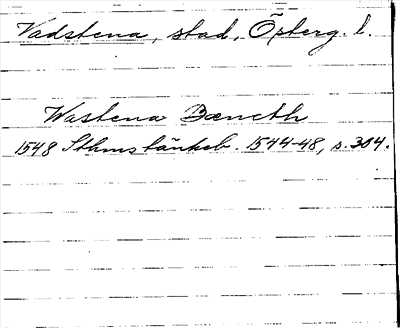 Vadstena, stad, Öpberg. l.
Wastena Dæncth
1548 Sthms tänkeb. 1544-48, s. 304.